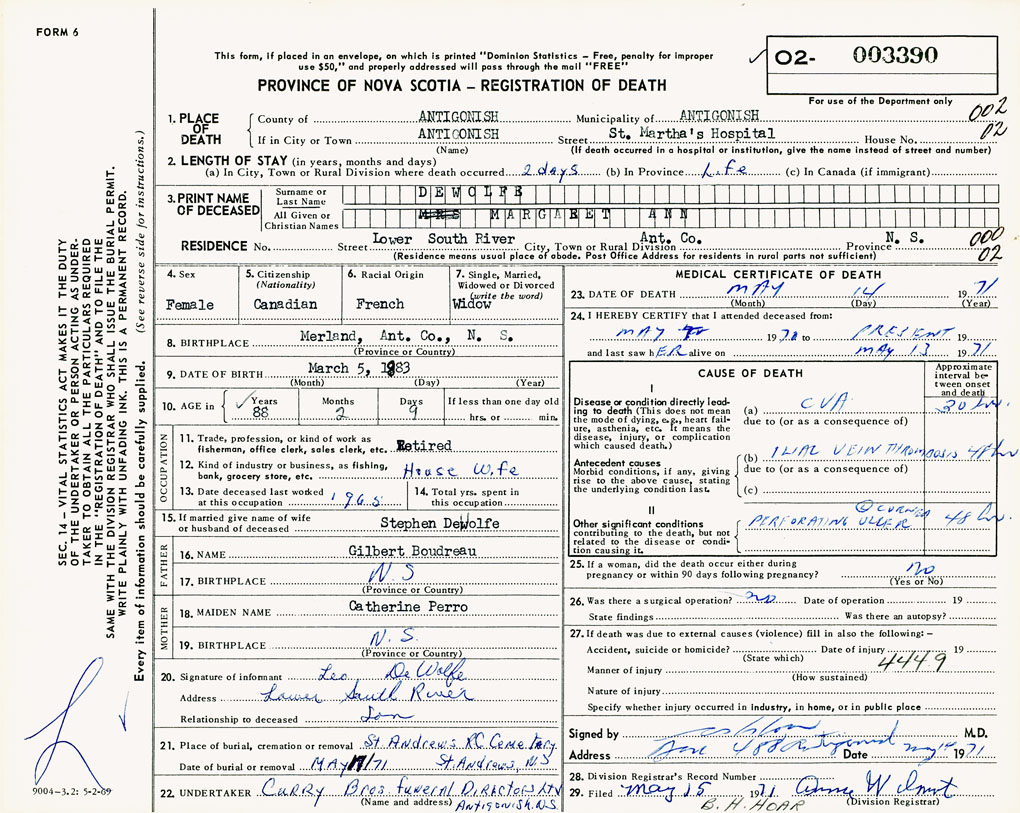 FORM 6
This form, if placed in an envelope, on which is printed "Dominion Statistics – Free, penalty for improper
use $50," and properly addressed will pass through the mail "FREE"
PROVINCE OF NOVA SCOTIA – REGISTRATION OF DEATH
02- 003390
For use of the Department only
002
02
1. PLACE OF DEATH
County of ANTIGONISH Municipality of ANTIGONISH
If in City or Town ANTIGONISH Street St. Martha's Hospital House No.
(Name) (If death occurred in a hospital or institution, give the name instead of street and number)
2. LENGTH OF STAY (in years, months and days)
(a) In City, Town or Rural Division where death occurred 2 days (b) In Province Life (c) In Canada (if immigrant)
3. PRINT NAME OF DECEASED
Surname or Last Name DEWOLFE
All Given or Christian Names MRS MARGARET ANN
RESIDENCE No. Street Lower South River City, Town or Rural Division Ant. Co. Province N. S.
(Residence means usual place of abode. Post Office Address for residents in rural parts not sufficient)
000
02
4. Sex
Female
5. Citizenship
(Nationality)
Canadian
6. Racial Origin
French
7. Single, Married,
Widowed or Divorced
(write the word)
Widow
8. BIRTHPLACE Merland, Ant. Co., N. S.
(Province or Country)
9. DATE OF BIRTH March 5, 1883
(Month) (Day) (Year)
10. AGE in Years Months Days If less than one day old
88 2 9 hrs. or min.
OCCUPATION
11. Trade, profession, or kind of work as
fisherman, office clerk, sales clerk, etc. Retired
12. Kind of industry or business, as fishing,
bank, grocery store, etc. House Wife
13. Date deceased last worked
at this occupation 1965
14. Total yrs. spent in
this occupation
15. If married give name of wife
or husband of deceased Stephen DeWolfe
FATHER
16. NAME Gilbert Boudreau
17. BIRTHPLACE N.S
(Province or Country)
MOTHER
18. MAIDEN NAME Catherine Perro
19. BIRTHPLACE N.S.
(Province or Country)
20. Signature of informant Leo DeWolfe
Address Lower South River
Relationship to deceased Son
21. Place of burial, cremation or removal St Andrews RC Cemetary
Date of burial or removal MAY 17/71 St Andrews, N.S
22. UNDERTAKER CURRY Bros. Funeral Directors LTD
(Name and address) Antigonish N.S.
MEDICAL CERTIFICATE OF DEATH
23. DATE OF DEATH MAY 14 1971
(Month) (Day) (Year)
24. I HEREBY CERTIFY that I attended deceased from:
MAY 1970 to PRESENT 19
and last saw hER alive on MAY 13 1971
CAUSE OF DEATH
Approximate interval between onset and death
I
Disease or condition directly leading to death (This does not mean the mode of dying, e.g., heart failure, asthenia, etc. It means the disease, injury, or complication which caused death.)
(a) CVA 30 hrs.
due to (or as a consequence of)
(b) ILIAL VEIN THROMBOSIS 48 hrs
Antecedent causes
Morbid conditions, if any, giving rise to the above cause, stating the underlying condition last.
due to (or as a consequence of)
(c)
II
Other significant conditions
contributing to the death, but not related to the disease or condition causing it.
PERFORATING ULCER 48 hrs
25. If a woman, did the death occur either during
pregnancy or within 90 days following pregnancy? no
(Yes or No)
26. Was there a surgical operation? no Date of operation 19
State findings Was there an autopsy?
27. If death was due to external causes (violence) fill in also the following: –
Accident, suicide or homicide? Date of injury 19
(State which) 4449
Manner of injury
(How sustained)
Nature of injury
Specify whether injury occurred in industry, in home, or in public place
Signed by M.D.
Address Box 488 Antigonish Date May 14 1971
28. Division Registrar's Record Number
29. Filed May 15 1971
(Division Registrar)
B. H. HOAR
SEC. 14 – VITAL STATISTICS ACT MAKES IT THE DUTY
OF THE UNDERTAKER OR PERSON ACTING AS UNDER-
TAKER TO OBTAIN ALL THE PARTICULARS REQUIRED
IN THE "REGISTRATION OF DEATH" AND TO FILE THE
SAME WITH THE DIVISION REGISTRAR WHO SHALL ISSUE THE BURIAL PERMIT.
WRITE PLAINLY WITH UNFADING INK. THIS IS A PERMANENT RECORD.
Every item of information should be carefully supplied. (See reverse side for instructions.)
9004-3.2: 5-2-69